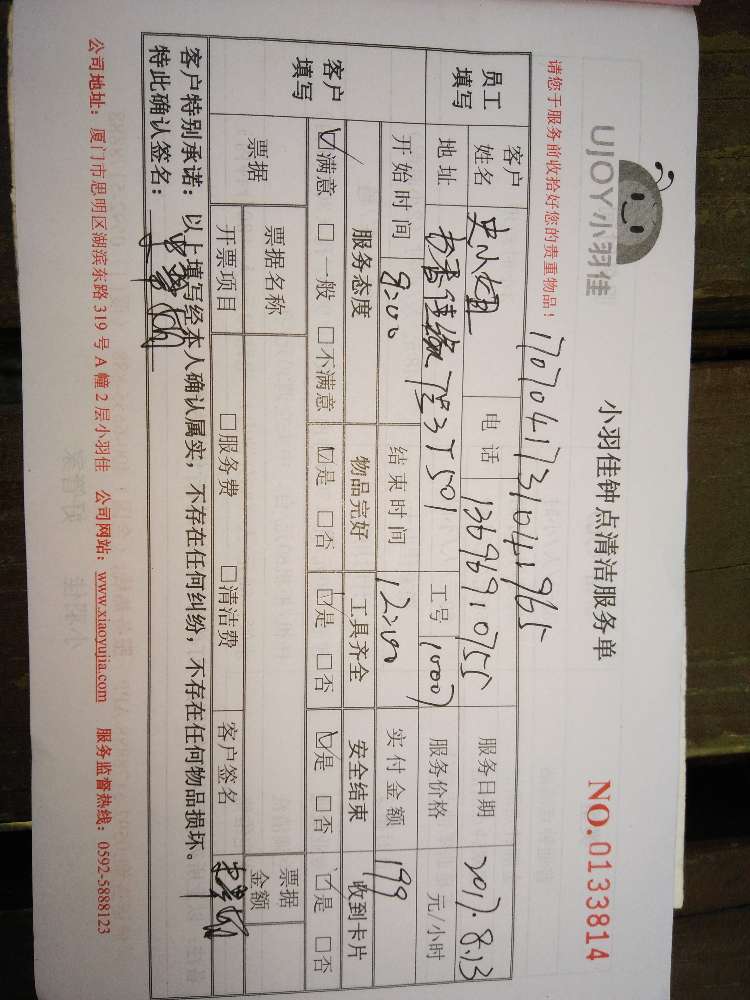 UJOY小羽佳
小羽佳钟点清洁服务单
NO.0133814
请您于服务前收拾好您的贵重物品！
1707041731041965
员工填写 客户姓名 史小姐 电话 13696910755 服务日期 2017.8.13
地址 书香佳缘 501 工号 10007 服务价格 元/小时
开始时间 9:00 结束时间 12:00 实付金额 199
客户填写 服务态度 物品完好 工具齐全 安全结束 收到卡片
☑满意 □一般 □不满意 ☑是 □否 ☑是 □否 ☑是 □否 ☑是 □否
票据 票据名称 票据金额
开票项目 □服务费 □清洁费 客户签名
客户特别承诺：以上填写经本人确认属实，不存在任何纠纷，不存在任何物品损坏。
特此确认签名：
公司地址：厦门市思明区湖滨东路 319 号 A 幢 2 层小羽佳 公司网站：www.xiaoyujia.com 服务监督热线：0592-5888123